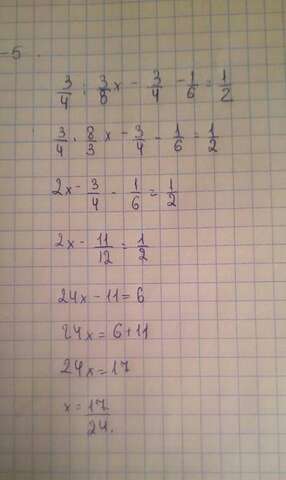 -5.
3/4 : 3/8 x - 3/4 - 1/6 = 1/2
3/4 · 8/3 x - 3/4 - 1/6 = 1/2
2x - 3/4 - 1/6 = 1/2
2x - 11/12 = 1/2
24x - 11 = 6
24x = 6 + 11
24x = 17
x = 17/24.